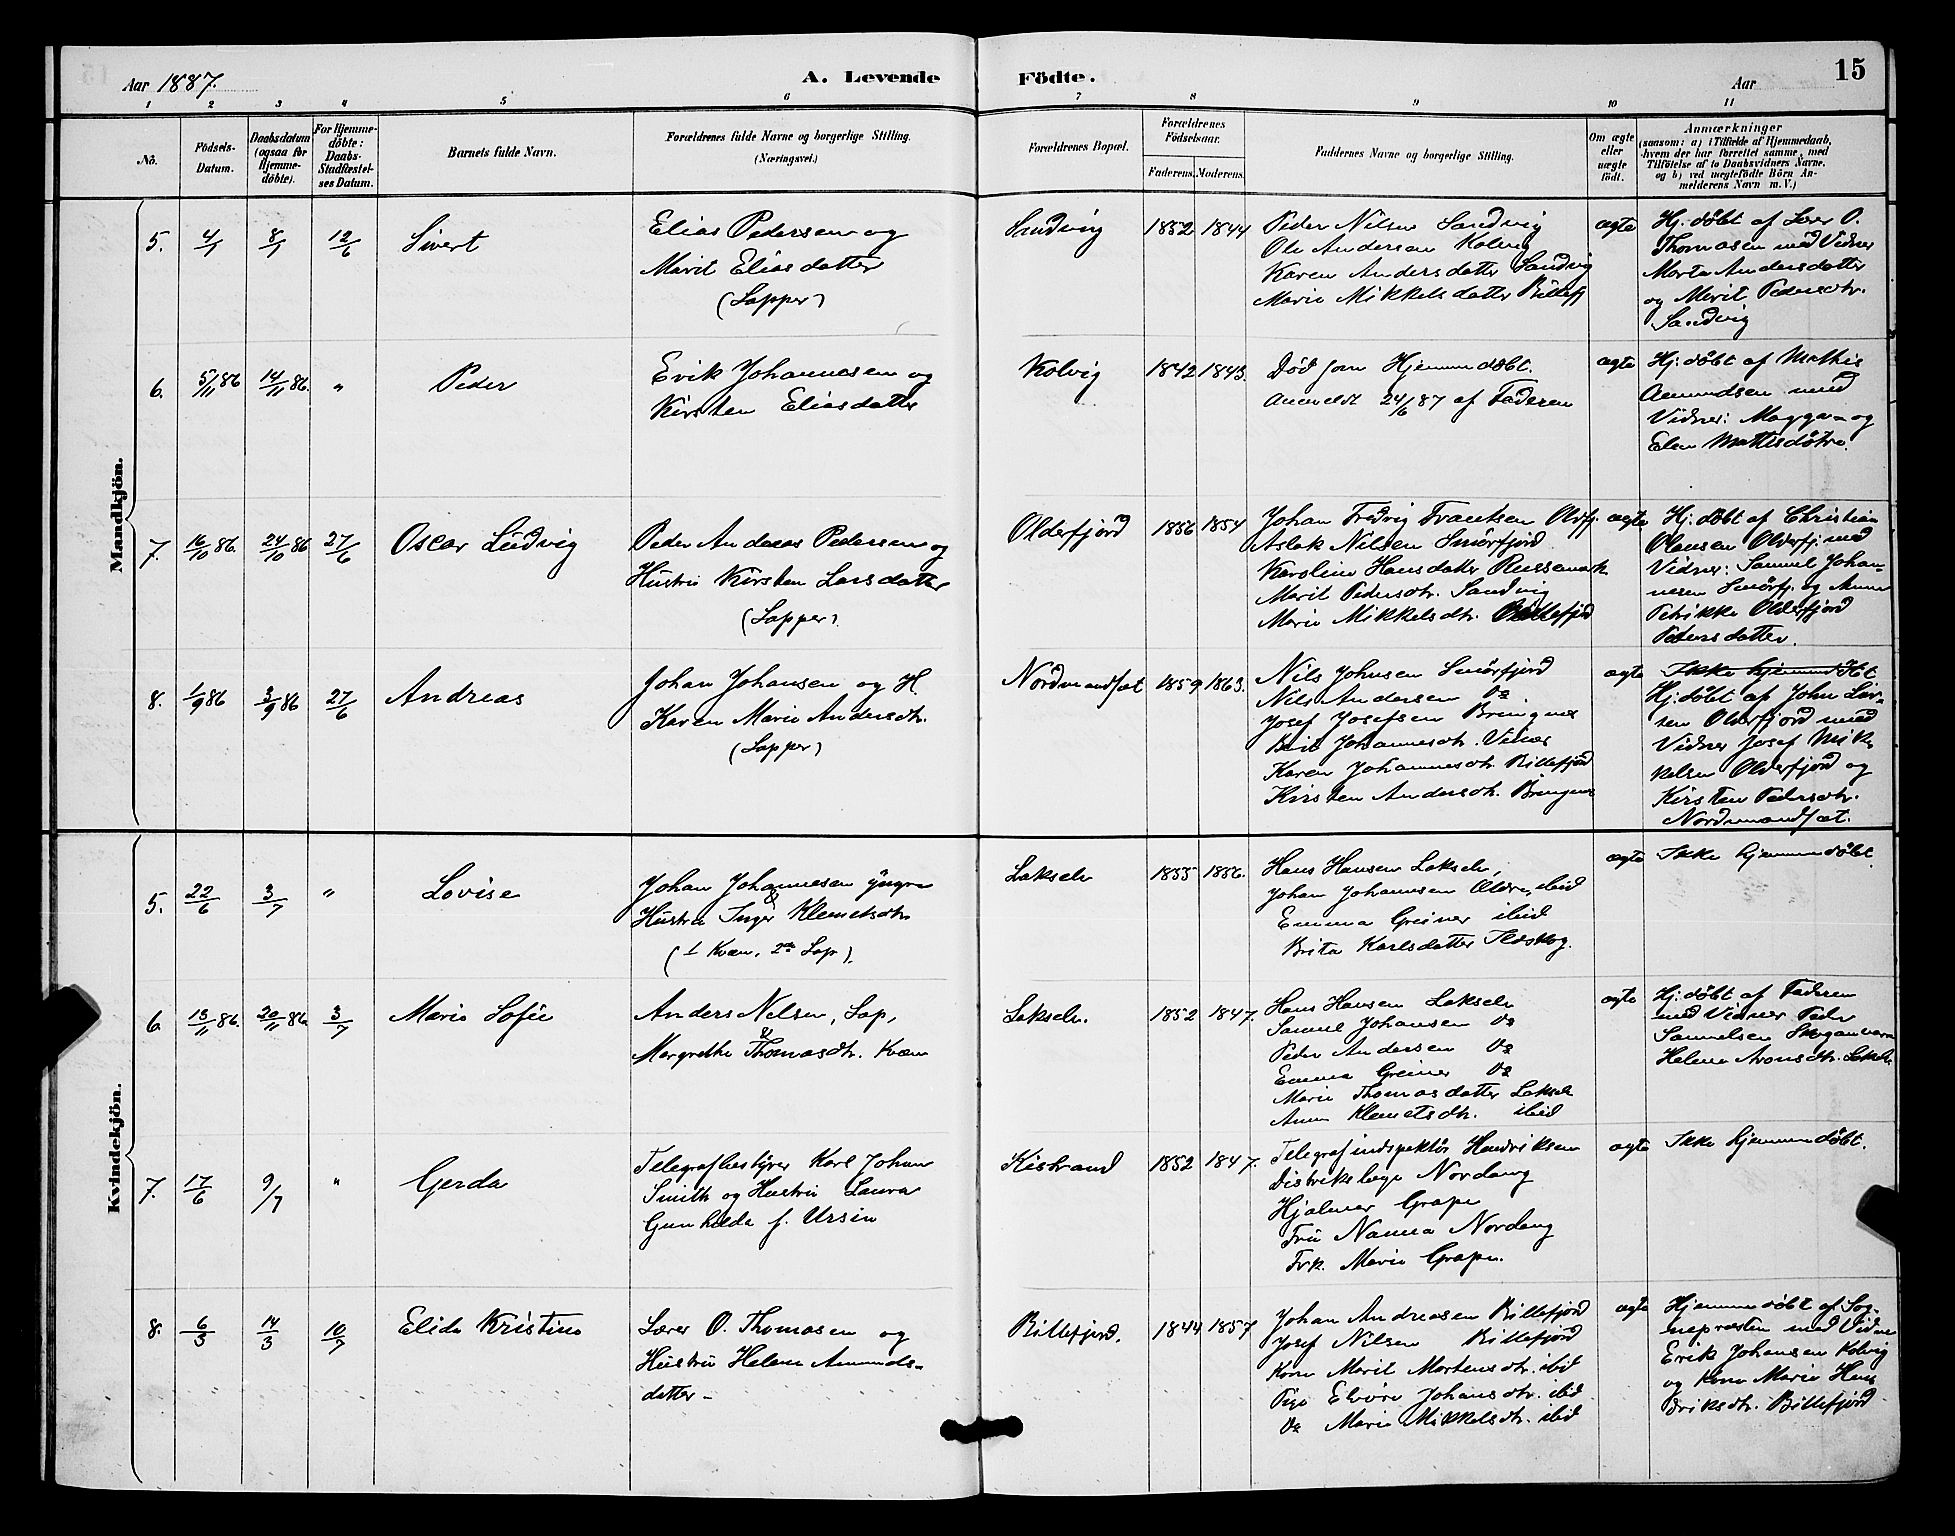 Aar 1887.
A. Levende Födte.
Aar
15
1 2 3 4 5 6 7 8 9 10 11
No.
Födsels-Datum.
Daabsdatum (ogsaa for Hjemme-döbte).
For Hjemme-döbte: Daabs-Stadfæstel-ses Datum.
Barnets fulde Navn.
Forældrenes fulde Navne og borgerlige Stilling. (Næringsvei.)
Forældrenes Bopæl.
Forældrenes Födselsaar.
Faderens. Moderens.
Faddernes Navne og borgerlige Stilling.
Om ægte eller uægte födt.
Anmærkninger
(saasom: a) i Tilfælde af Hjemmedaab,
hvem der har forrettet samme, med
Tilföielse af to Daabsvidners Navne,
og b) ved uægtefödte Börn An-
melderens Navn m. V.)
Mandkjön.
5. 4/1 8/1 12/6 Sivert
Elias Pedersen og
Marit Eliasdatter
(Lapper)
Sandvig 1852 1844
Peder Nilsen Sandvig
Ole Andersen Kolvig
Karen Andersdatter Sandvig
Marie Mikkelsdatter Billefj
ægte
Hj. döbt af Lærer O.
Thomasen med Vidner
Marta Andersdatter
og Marit Pedersdtr.
Sandvig
6. 5/11 86 14/11 86. " Peder
Erik Johannesen og
Kirsten Eliasdatter
Kolvig 1842 1843.
Död som Hjemmedöbt.
Anmeldt 24/6 87 af Faderen
ægte
Hj. döbt af Mathis
Amundsen med
Vidner: Magga- og
Elen Mathisdötre.
7. 16/10 86. 24/10 86 27/6 Oscar Ludvig
Peder Andreas Pedersen og
Hustru Kirsten Larsdatter
(Lapper).
Olderfjord 1856 1854
Johan Fredrig Frantsen Oldfj.
Aslak Nilsen Smörfjord
Karoline Hansdatter Russemark
Marit Pedersdtr. Sandvig
Marie Mikkelsdtr. Billefjord
ægte
Hj. döbt af Christian
Olausen Olderfj. med
Vidner: Samuel Johan-
nesen Smörfj. og Anne
Petrikke Olderfjord
Pedersdatter.
8. 1/9 86 3/9 86 27/6 Andreas
Johan Johansen og H.
Karen Marie Andersdtr.
(Lapper)
Nordmandsæt 1859 1863.
Nils Johnsen Smörfjord
Nils Andersen Do
Josef Josefsen Bringnes
Berit Johannesdtr.
Karen Johannesdtr. Billefjord
Kirsten Andersdtr. Bringnes
ægte
Ikke hjemmedöbt
Hj. döbt af John Lar-
sen Olderfjord med
Vidner Josef Mik-
kelsen Olderfjord og
Kirsten Pedersdtr.
Nordmandsæt.
Kvindekjön.
5. 22/6 3/7 " Lovise
Johan Johannesen yngre
& Hustru Inger Klemetsdtr
(1 Kvæn, 2den Lap).
Lakselv 1855 1856.
Hans Hansen Lakselv,
Johan Johannesen Ældre, ibid
Emma Greiner ibid
Brita Karlsdatter
ægte
Ikke hjemmedöbt
6. 13/11 86. 20/11 86. 3/7 Marie Sofie
Anders Nilsen, Lap,
&
Margrethe Thomasdtr. Kvæn
Lakselv. 1852 1847.
Hans Hansen Lakselv
Samuel Johansen Do
Peder Andersen Do
Emma Greiner Do
Marie Thomasdatter Lakselv
Anna Klemetsdtr. ibid
ægte
Hj. döbt af Faderen
med Vidner Peder
Samuelsen Skoganvarre
Helene Aronsdtr. Lakselv.
7. 17/6 9/7 " Gerda
Telegrafbestyrer Karl Johan
Smith og Hustru Laura
Gunhilda f. Ursin
Kistrand 1852 1847.
Telegrafindspektör Hendriksen
Distriktslæge Nordang
Hjalmar Grape
Fru Nanna Nordang
Frk. Marie Grape.
ægte
Ikke hjemmedöbt.
8. 6/3 14/3 10/7 Elida Kristine
Lærer O. Thomasen og
Hustru Helene Amunds-
datter-
Billefjord. 1844 1857
Johan Andreasen Billefjord
Josef Nilsen Billefjord
Kone Marit Mortensdtr. ibid
Pige Elvire Johansdtr. ibid
Do Marie Mikkelsdtr. ibid
ægte
Hjemmedöbt af Sog-
nepræsten med Vidner
Erik Johansen Kolvig
og Kone Marie Hen-
driksdtr. Billefjord